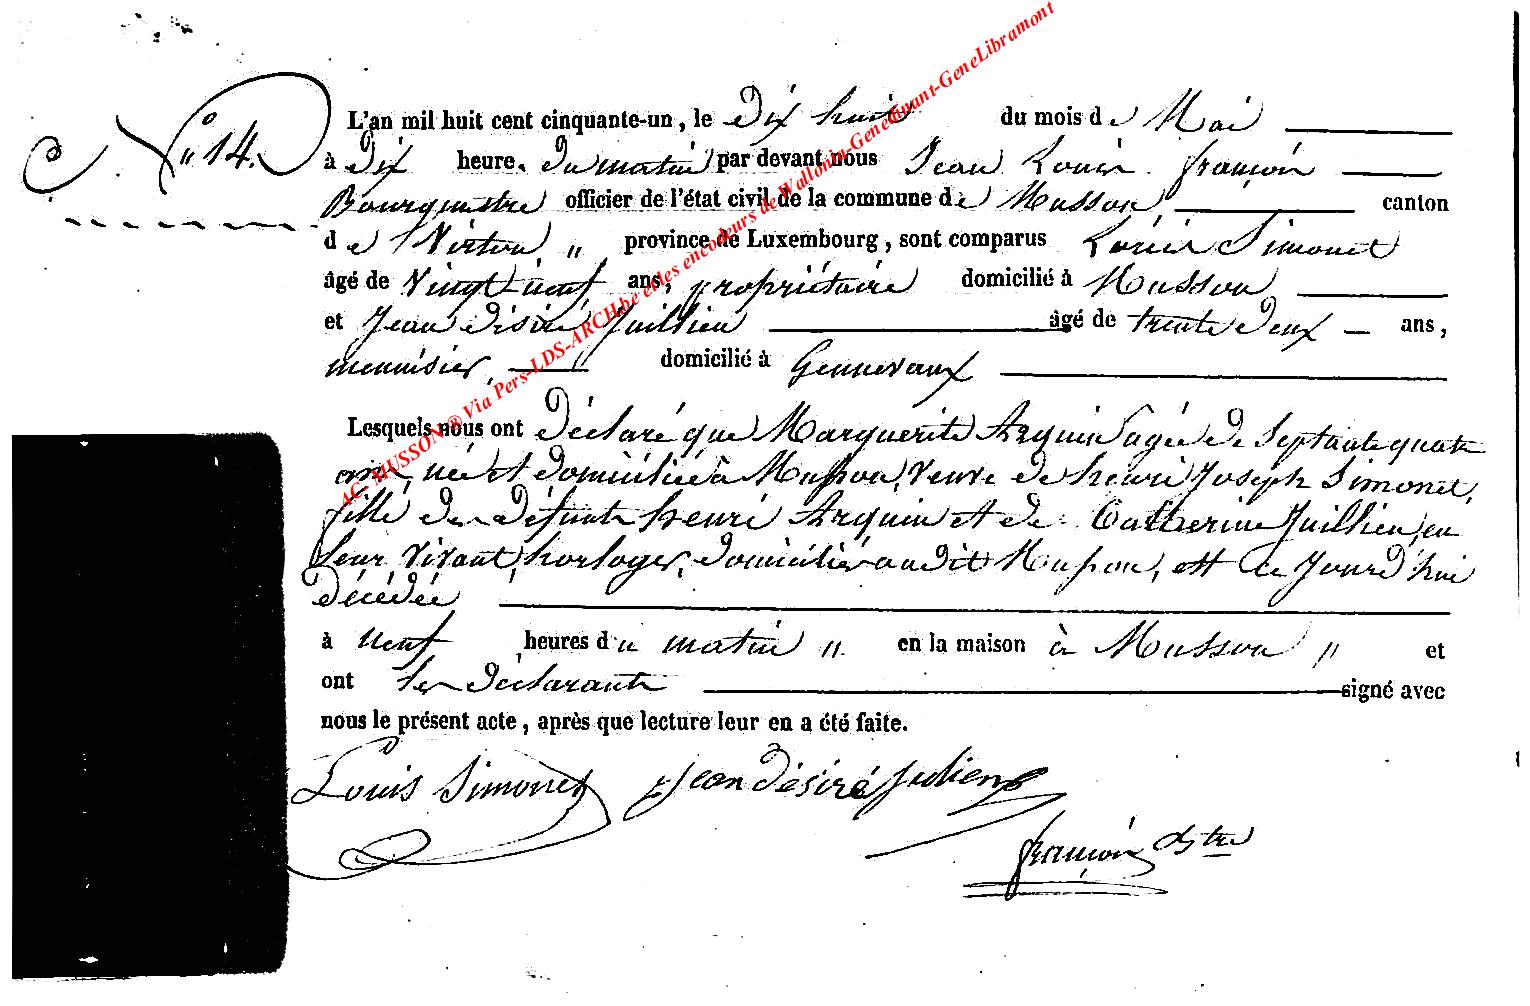 N° 14.
L'an mil huit cent cinquante-un, le Dix huit du mois de Mai
à Dix heure. Du matin par devant nous Jean Louis françois
Bourgmestre officier de l'état civil de la commune de Musson, canton
de Virton, " province de Luxembourg, sont comparus Louis Simonet
âgé de Vingt-neuf ans, propriétaire domicilié à Musson
et Jean Désiré Juillien âgé de trente deux ans,
menuisier, domicilié à Gennevaux
Lesquels nous ont Déclaré que Marguerite Arquin agée de Septante quatre
ans, née et domiciliée à Musson, veuve de henri Joseph Simonet,
fille des défunts henri Arquin et de Catherine Juillien, en
leur vivant, horloger, domiciliés audit Musson, est ce Jourd'hui
Décédée
à neuf heures du matin " en la maison à Musson " et
ont les Déclarants signé avec
nous le présent acte, après que lecture leur en a été faite.
Louis Simonet Jean Désiré Julien
françois
AC- MUSSON ® Via Pers-LDS-ARCH.be et les encodeurs de Wallonia-Genedinant-GeneLibramont